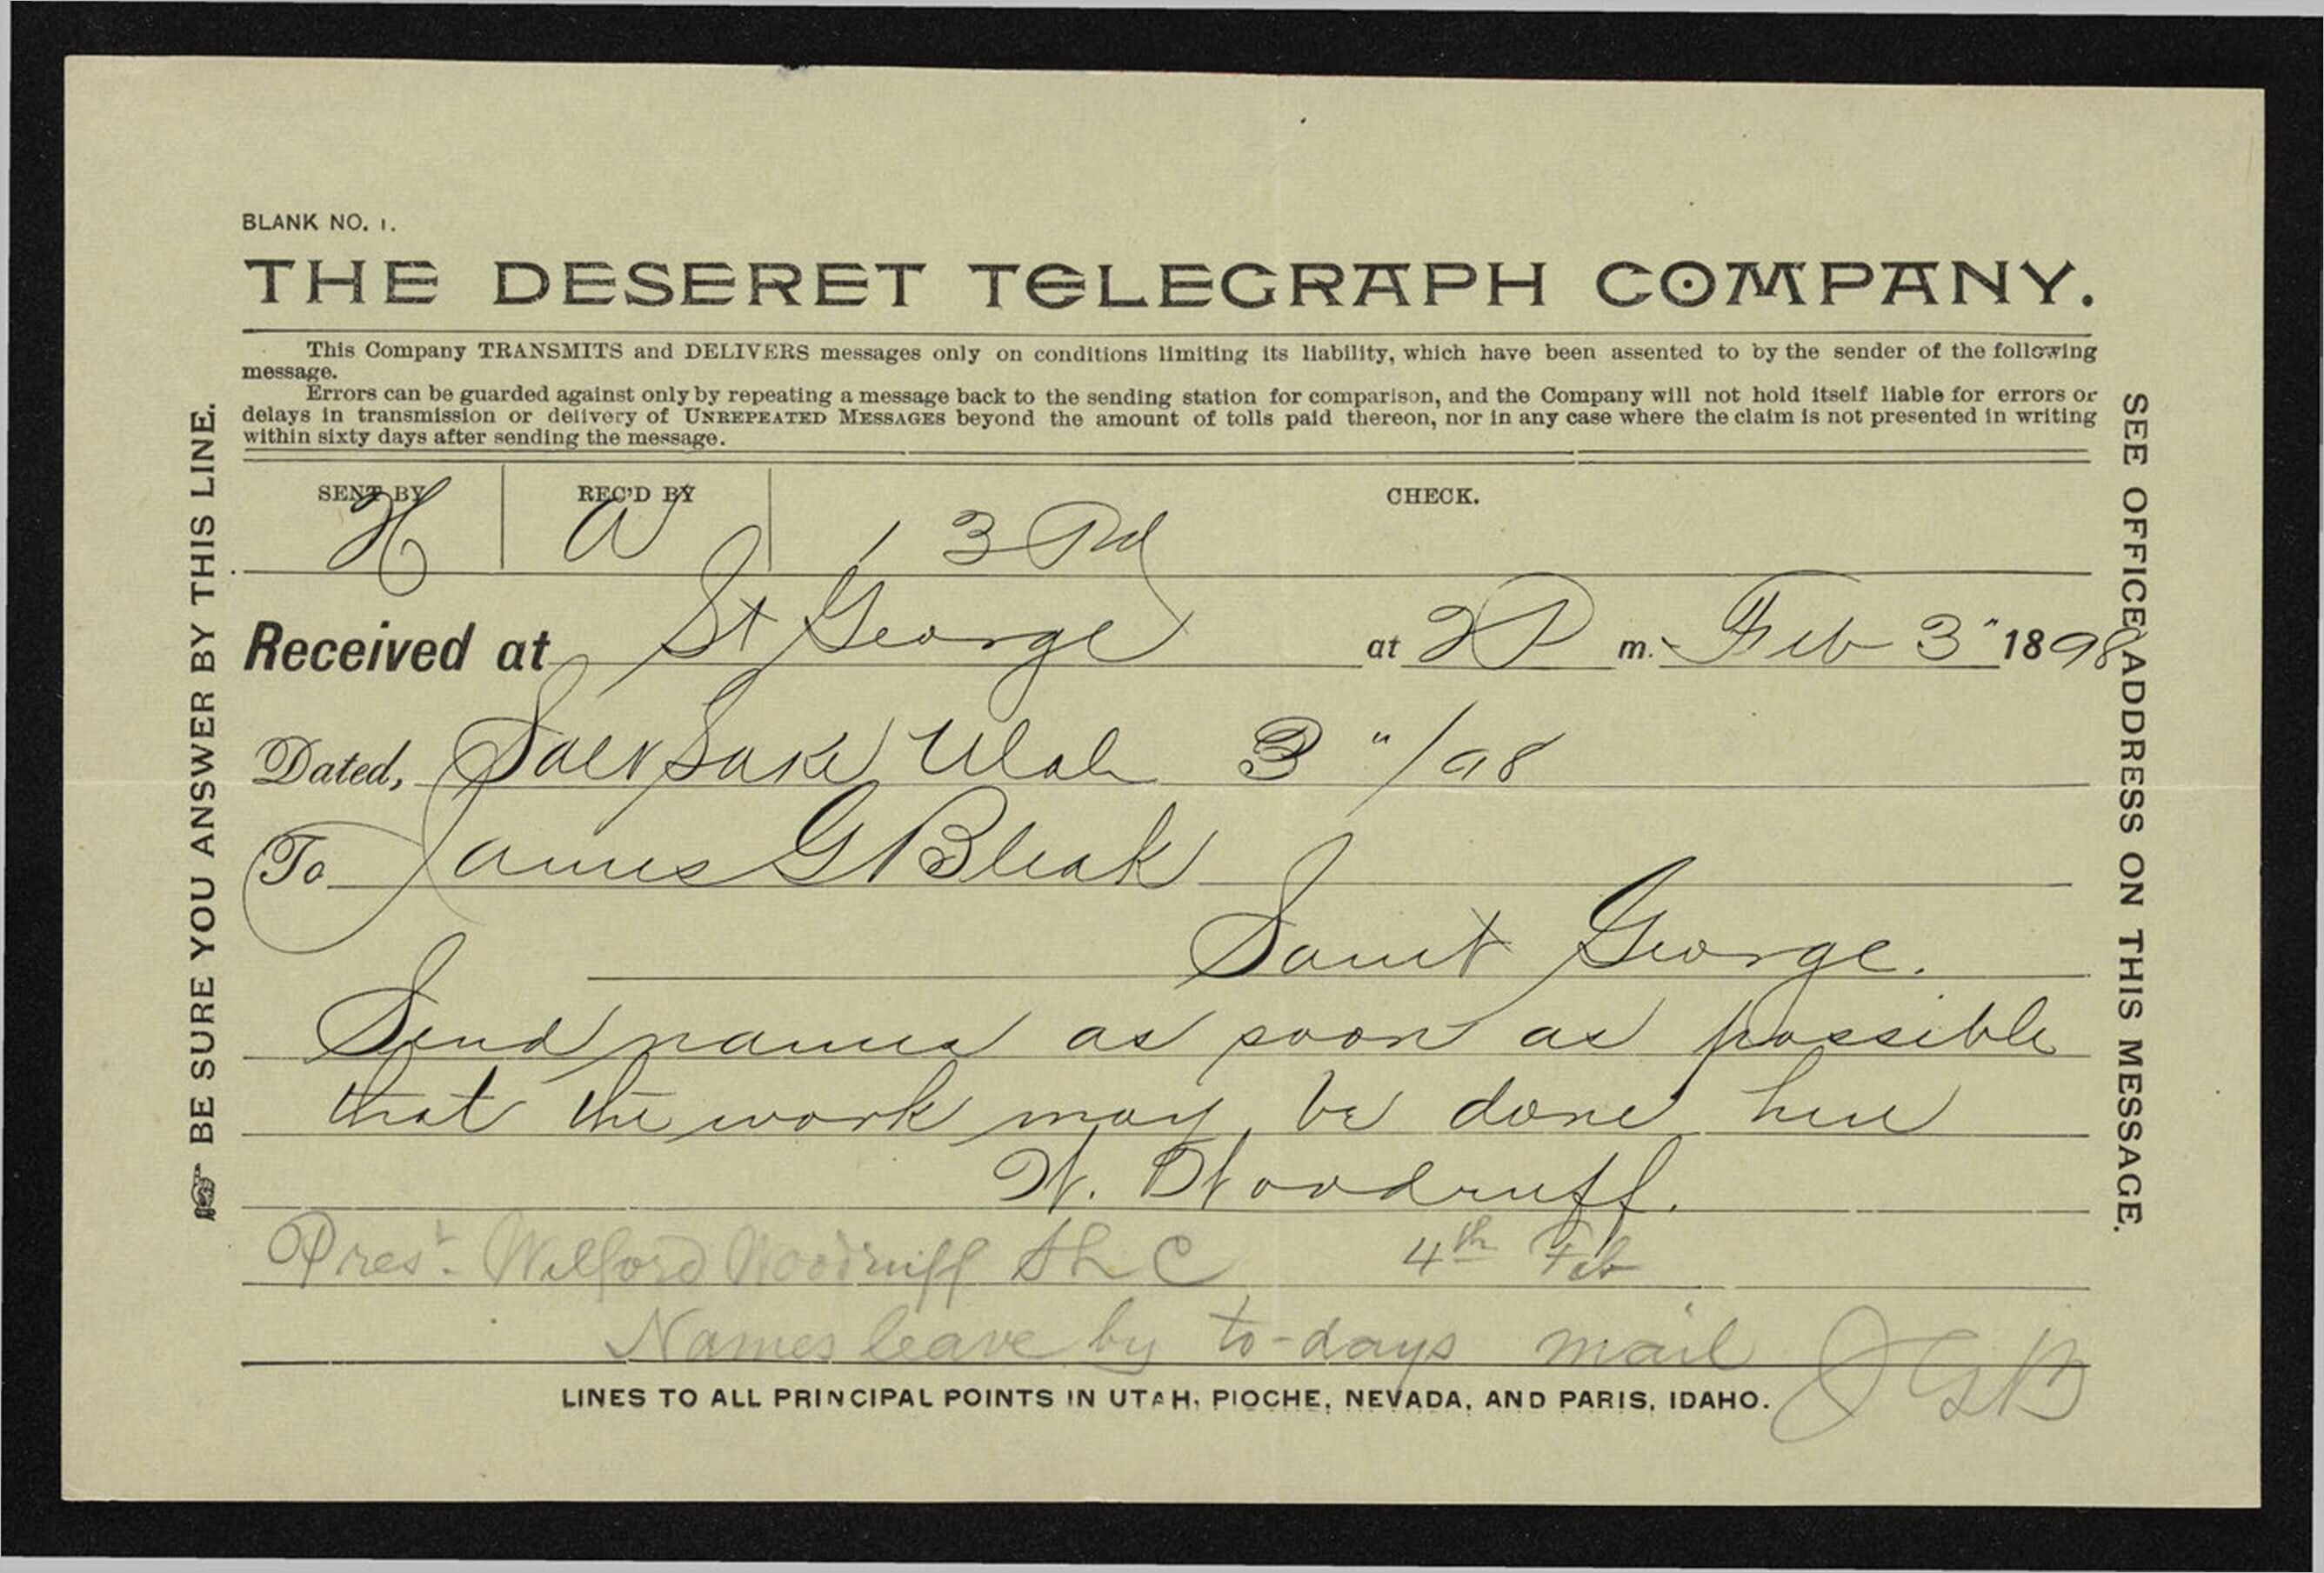 BLANK NO. 1.
THE DESERET TELEGRAPH COMPANY.
This Company TRANSMITS and DELIVERS messages only on conditions limiting its liability, which have been assented to by the sender of the following
message.
Errors can be guarded against only by repeating a message back to the sending station for comparison, and the Company will not hold itself liable for errors or
delays in transmission or delivery of UNREPEATED MESSAGES beyond the amount of tolls paid thereon, nor in any case where the claim is not presented in writing
within sixty days after sending the message.
SENT BY REC'D BY CHECK.
H W 13 Pd
Received at St George at 2 P m. Feb 3" 1898
Dated, Salt Lake Utah 3"/98
To James G Bleak
Saint George.
Send names as soon as possible
that the work may be done here
W. Woodruff.
Prest. Wilford Woodruff S L C 4th Feb
Names leave by to-days mail JGB
LINES TO ALL PRINCIPAL POINTS IN UTAH, PIOCHE, NEVADA, AND PARIS, IDAHO.
BE SURE YOU ANSWER BY THIS LINE.
SEE OFFICE ADDRESS ON THIS MESSAGE.